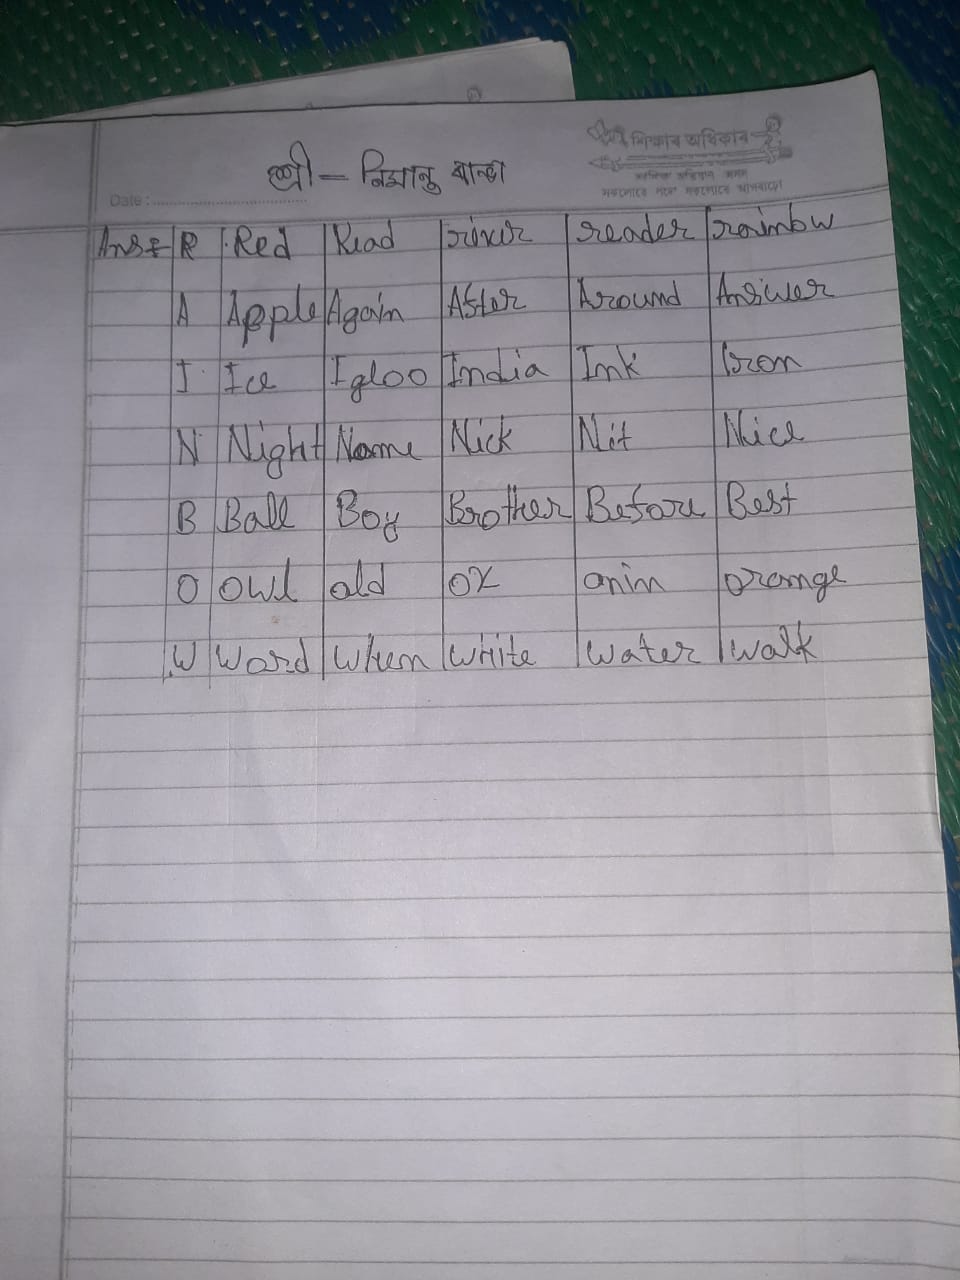 শিক্ষাৰ অধিকাৰ
শ্ৰী –
Date :
Ans R Red Read river reader rainbw
A Apple Again After Around Answer
I Ice Igloo India Ink Iron
N Night Name Nick Nit Nice
B Ball Boy Brother Before Best
O Owl old ox anim orange
W Word when white water walk